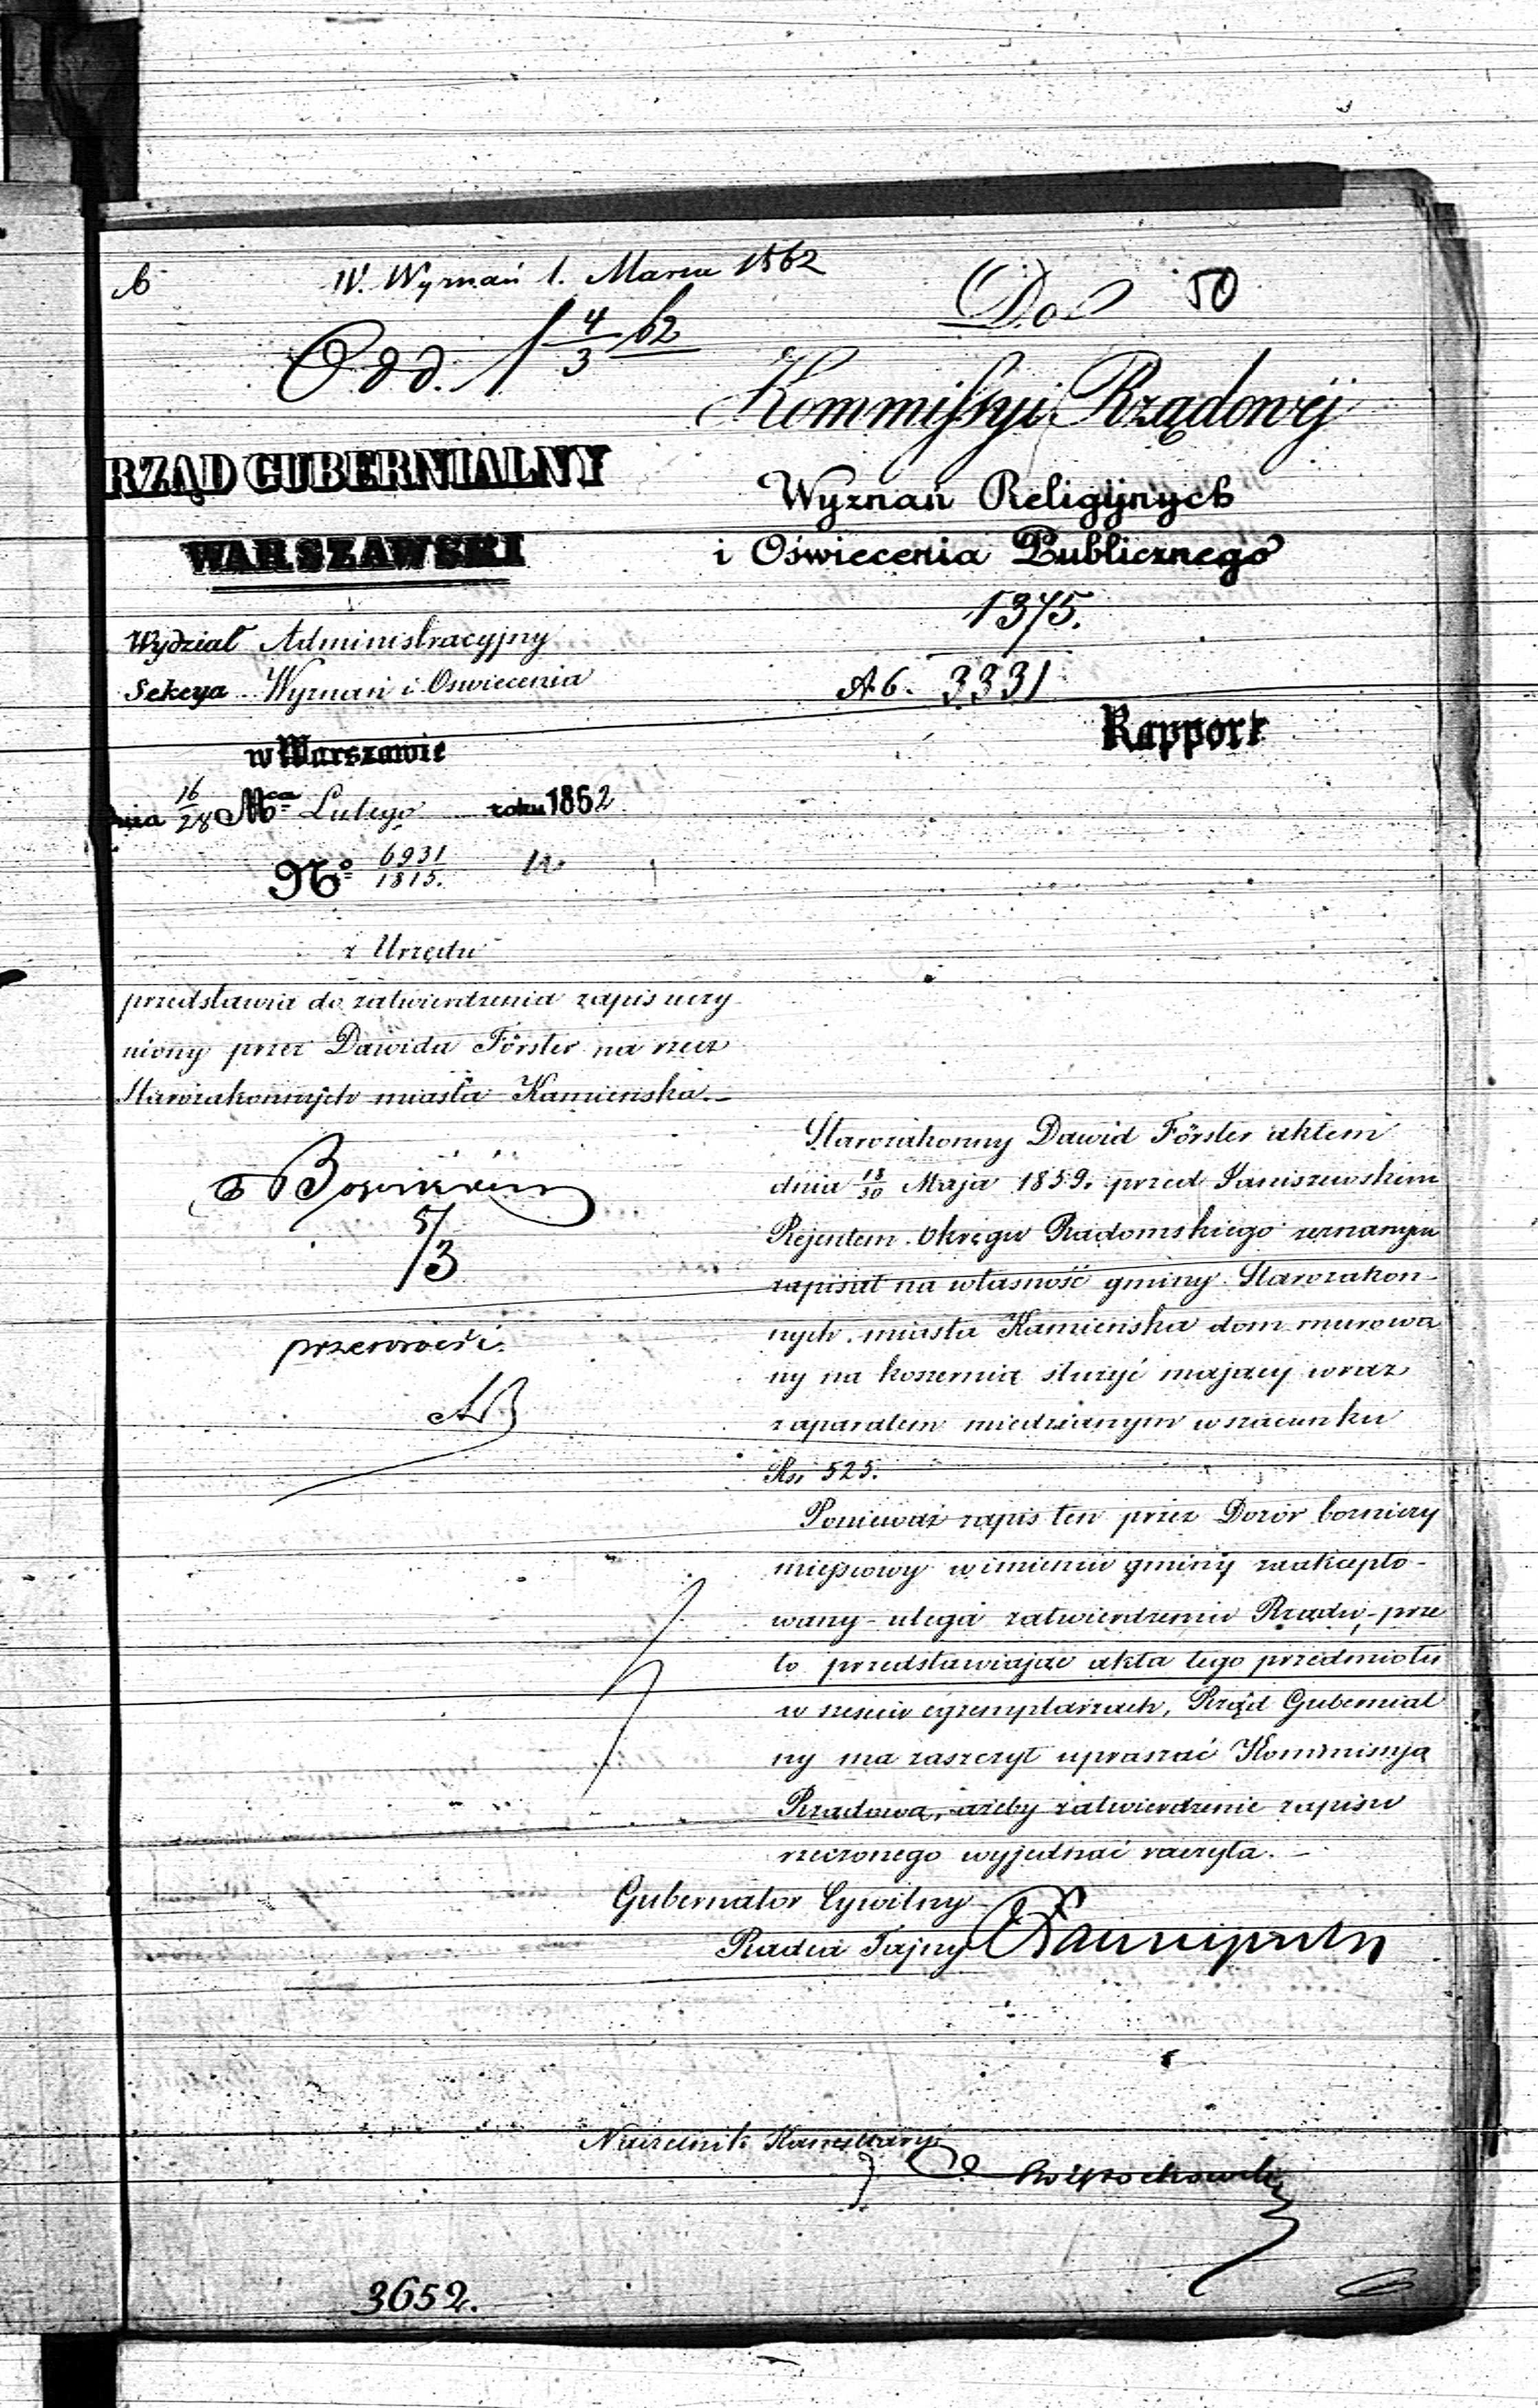 W. Wyznań 1. Marca 1862
Do
50
Odd. 1 4/3 62
Kommissyi Rządowéj
Wyznań Religijnych
i Oświecenia Publicznego
1375.
No. 3331
Rapport
RZĄD GUBERNIALNY
WARSZAWSKI
Wydział Administracyjny
Sekcya Wyznań i Oswiecenia
w Warszawie
dnia 16/28 Mca Lutego roku 1862
No 6931/1815.
z Urzędu
przedstawia do zatwierdzenia zapis uczy
niony przez Dawida Förster na rzecz
Starozakonnych miasta Kamieńska.
5/3
przerobić.
AB
Starozakonny Dawid Förster aktem
dnia 18/30 Maja 1859. przed Janiszewskim
Rejentem Okręgu Radomskiego zeznanym
zapisał na własność gminy Starozakon-
nych miasta Kamieńska dom murowa
ny na koszernią służyć mający wraz
z aparatem miedzianym w szacunku
Rsr 525.
Ponieważ zapis ten przez Dozór bożniczy
miejscowy w imieniu gminy zaakcepto-
wany – ulega zatwierdzeniu Rządu, – prze
to przedstawiając akta tego przedmiotu
w sześciu egzemplarzach, Rząd Gubernial
ny ma zaszczyt upraszać Kommissyą
Rządową, ażeby zatwierdzenie zapisu
rzeczonego wyjednać raczyła. –
Gubernator Cywilny
Radca Tajny
Naczelnik Kancellaryi
3652.